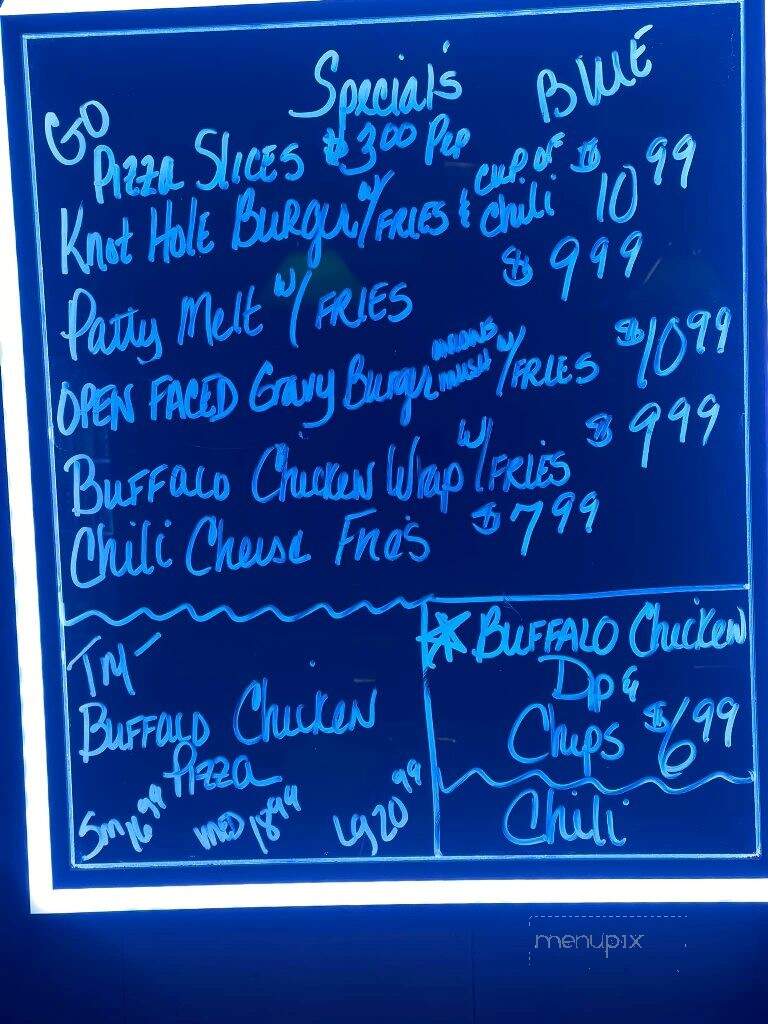 Special's
GO BLUE
Pizza Slices $3.00 Pep
Knot Hole Burger w/ FRIES & CUP OF Chili $10 99
Patty Melt w/ FRIES $9 99
OPEN FACED Gravy Burger w/ FRIES $10 99
Buffalo Chicken Wrap w/ FRIES $9 99
Chili Cheese Fries $7 99
TRY
Buffalo Chicken
Pizza
Sm 16 99 MED 18 99 Lg 20 99
* BUFFALO Chicken
Dip &
Chips $6 99
Chili
menupix